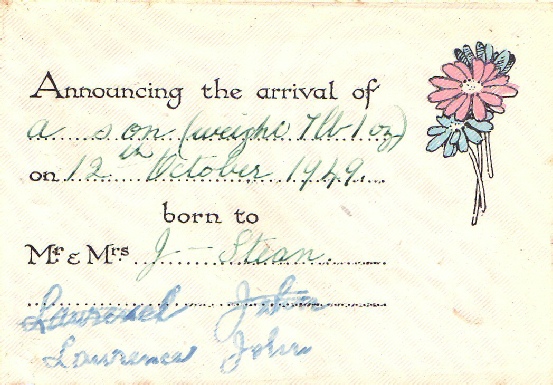 Announcing the arrival of
a son (weight 7lb 1 oz)
on 12th October 1949.
born to
Mr & Mrs J - Stean.
Laurence John
Lawrence John